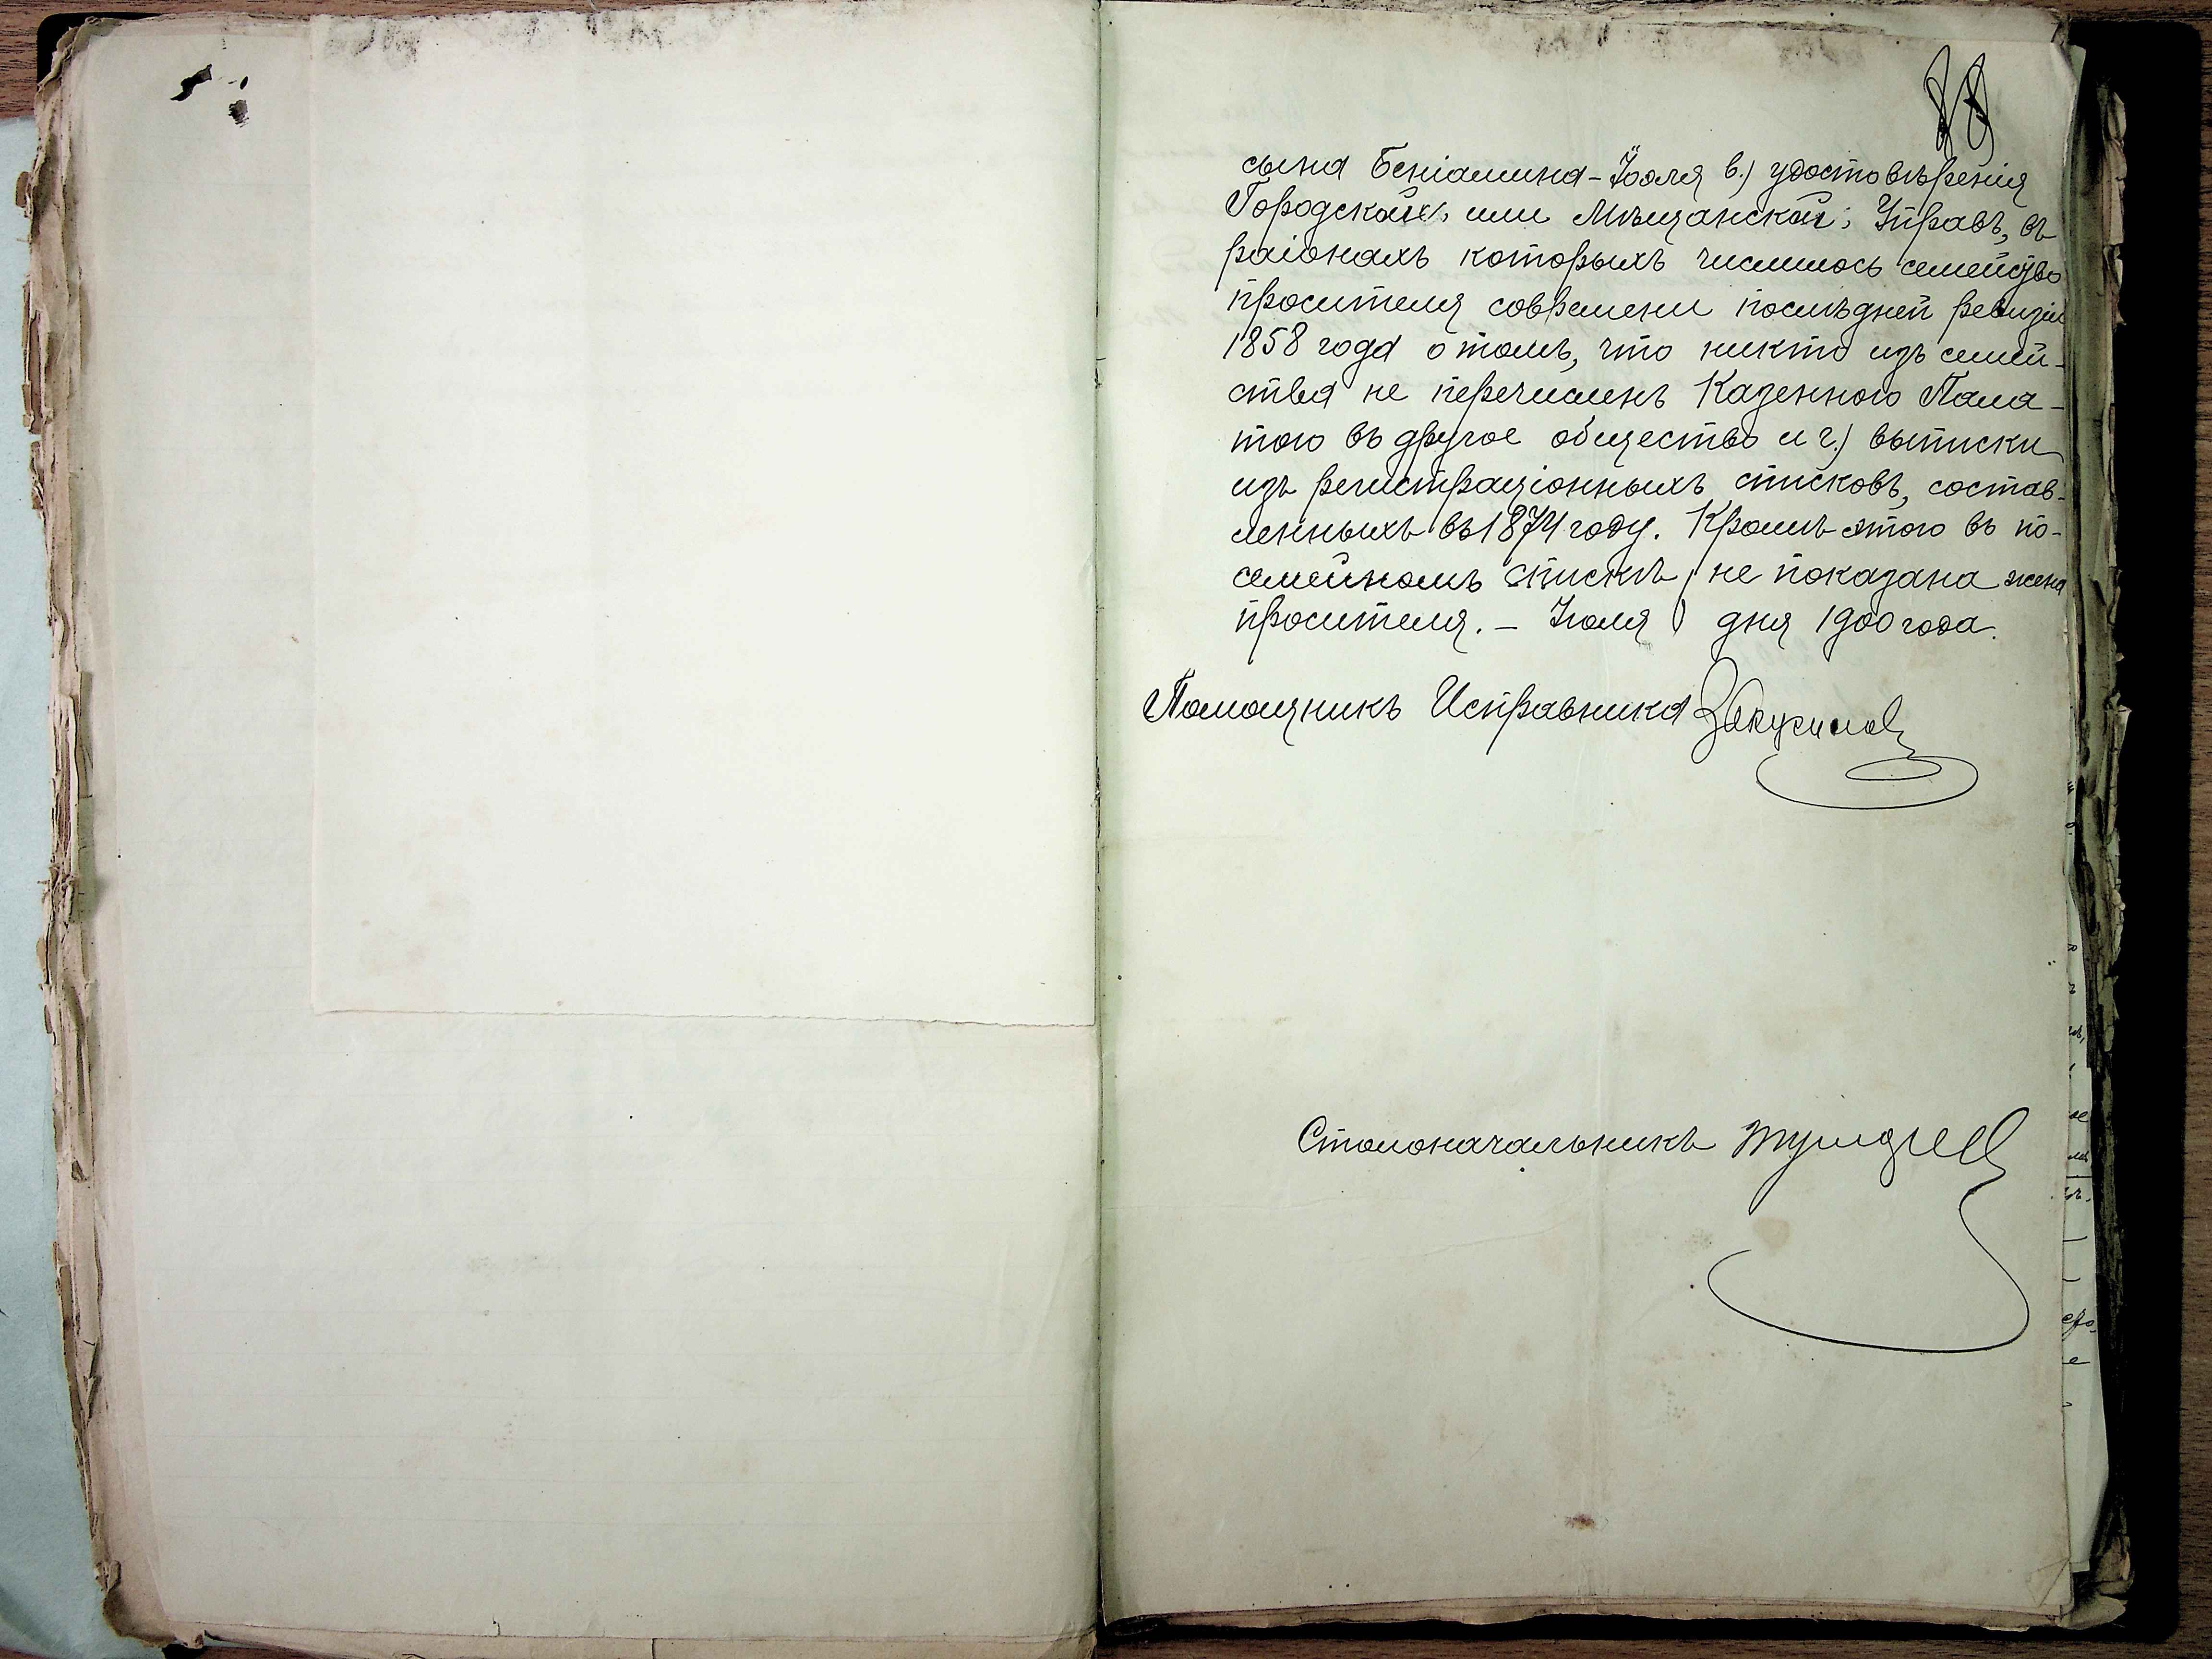 сына Беніамина-Іоэля в.) удостовѣренія
Городской, или Мѣщанской, Управъ, въ
раіонахъ которыхъ числилось семейство
просителя современи послѣдней ревизіи
1858 года о томъ, что никто изъ семей-
ства не перечисленъ Казенною Пала-
тою въ другое общество и г.) выписки
изъ регистраціонныхъ списковъ, состав-
ленныхъ въ 1874 году. Кромѣ этого въ по-
семейномъ спискѣ не показана жена
просителя. — Іюля дня 1900 года.
Помощникъ Исправника
Столоначальникъ